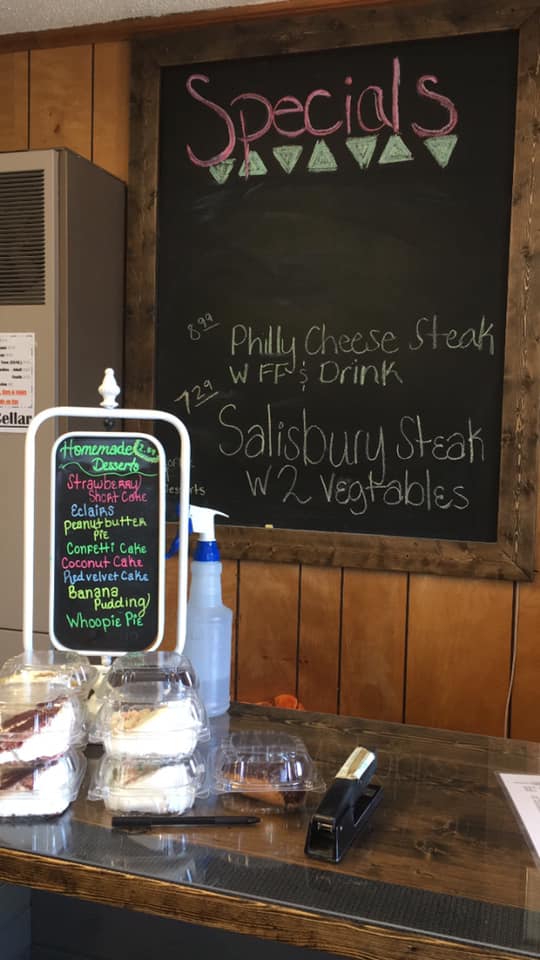 Specials
8.99 Philly Cheese Steak
W FF & Drink
7.29 Salisbury Steak
W 2 Vegtables
Homemade
Desserts
Strawberry
Short Cake
Eclairs
Peanut butter
Pie
Confetti Cake
Coconut Cake
Red velvet Cake
Banana
Pudding
Whoopie Pie
ellar